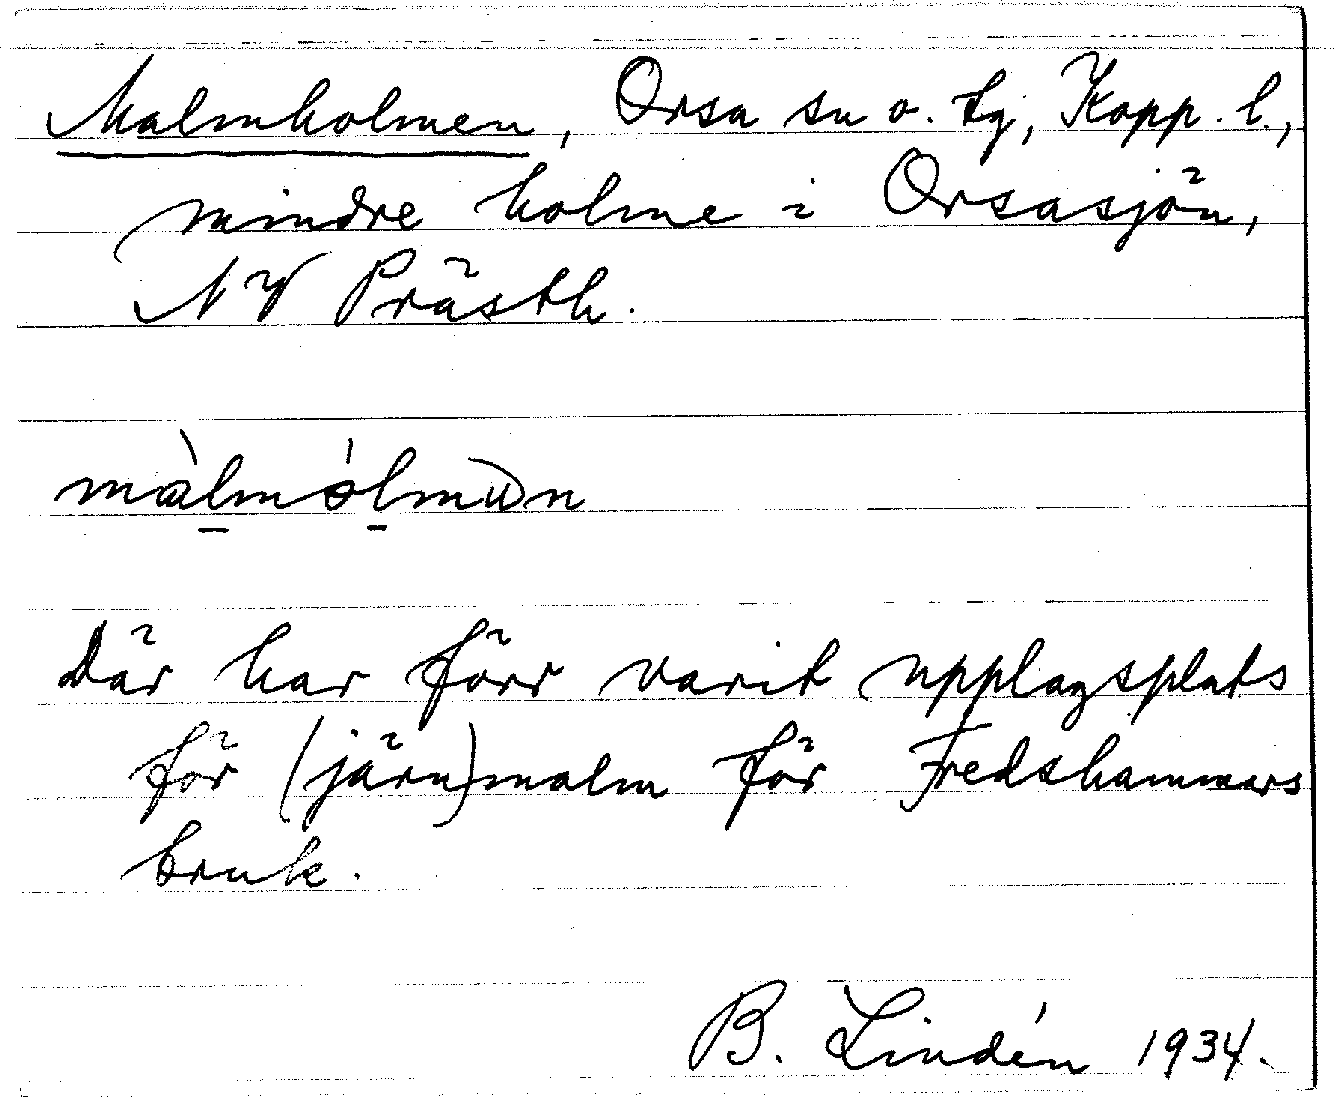 Malmholmen, Orsa sn o. tg, Kopp. l.,
mindre holme i Orsasjön,
NV Prästh.
màlmólmun
Där har förr varit upplagsplats
för (järn)malm för Fredshammars
bruk.
B. Lindén 1934.